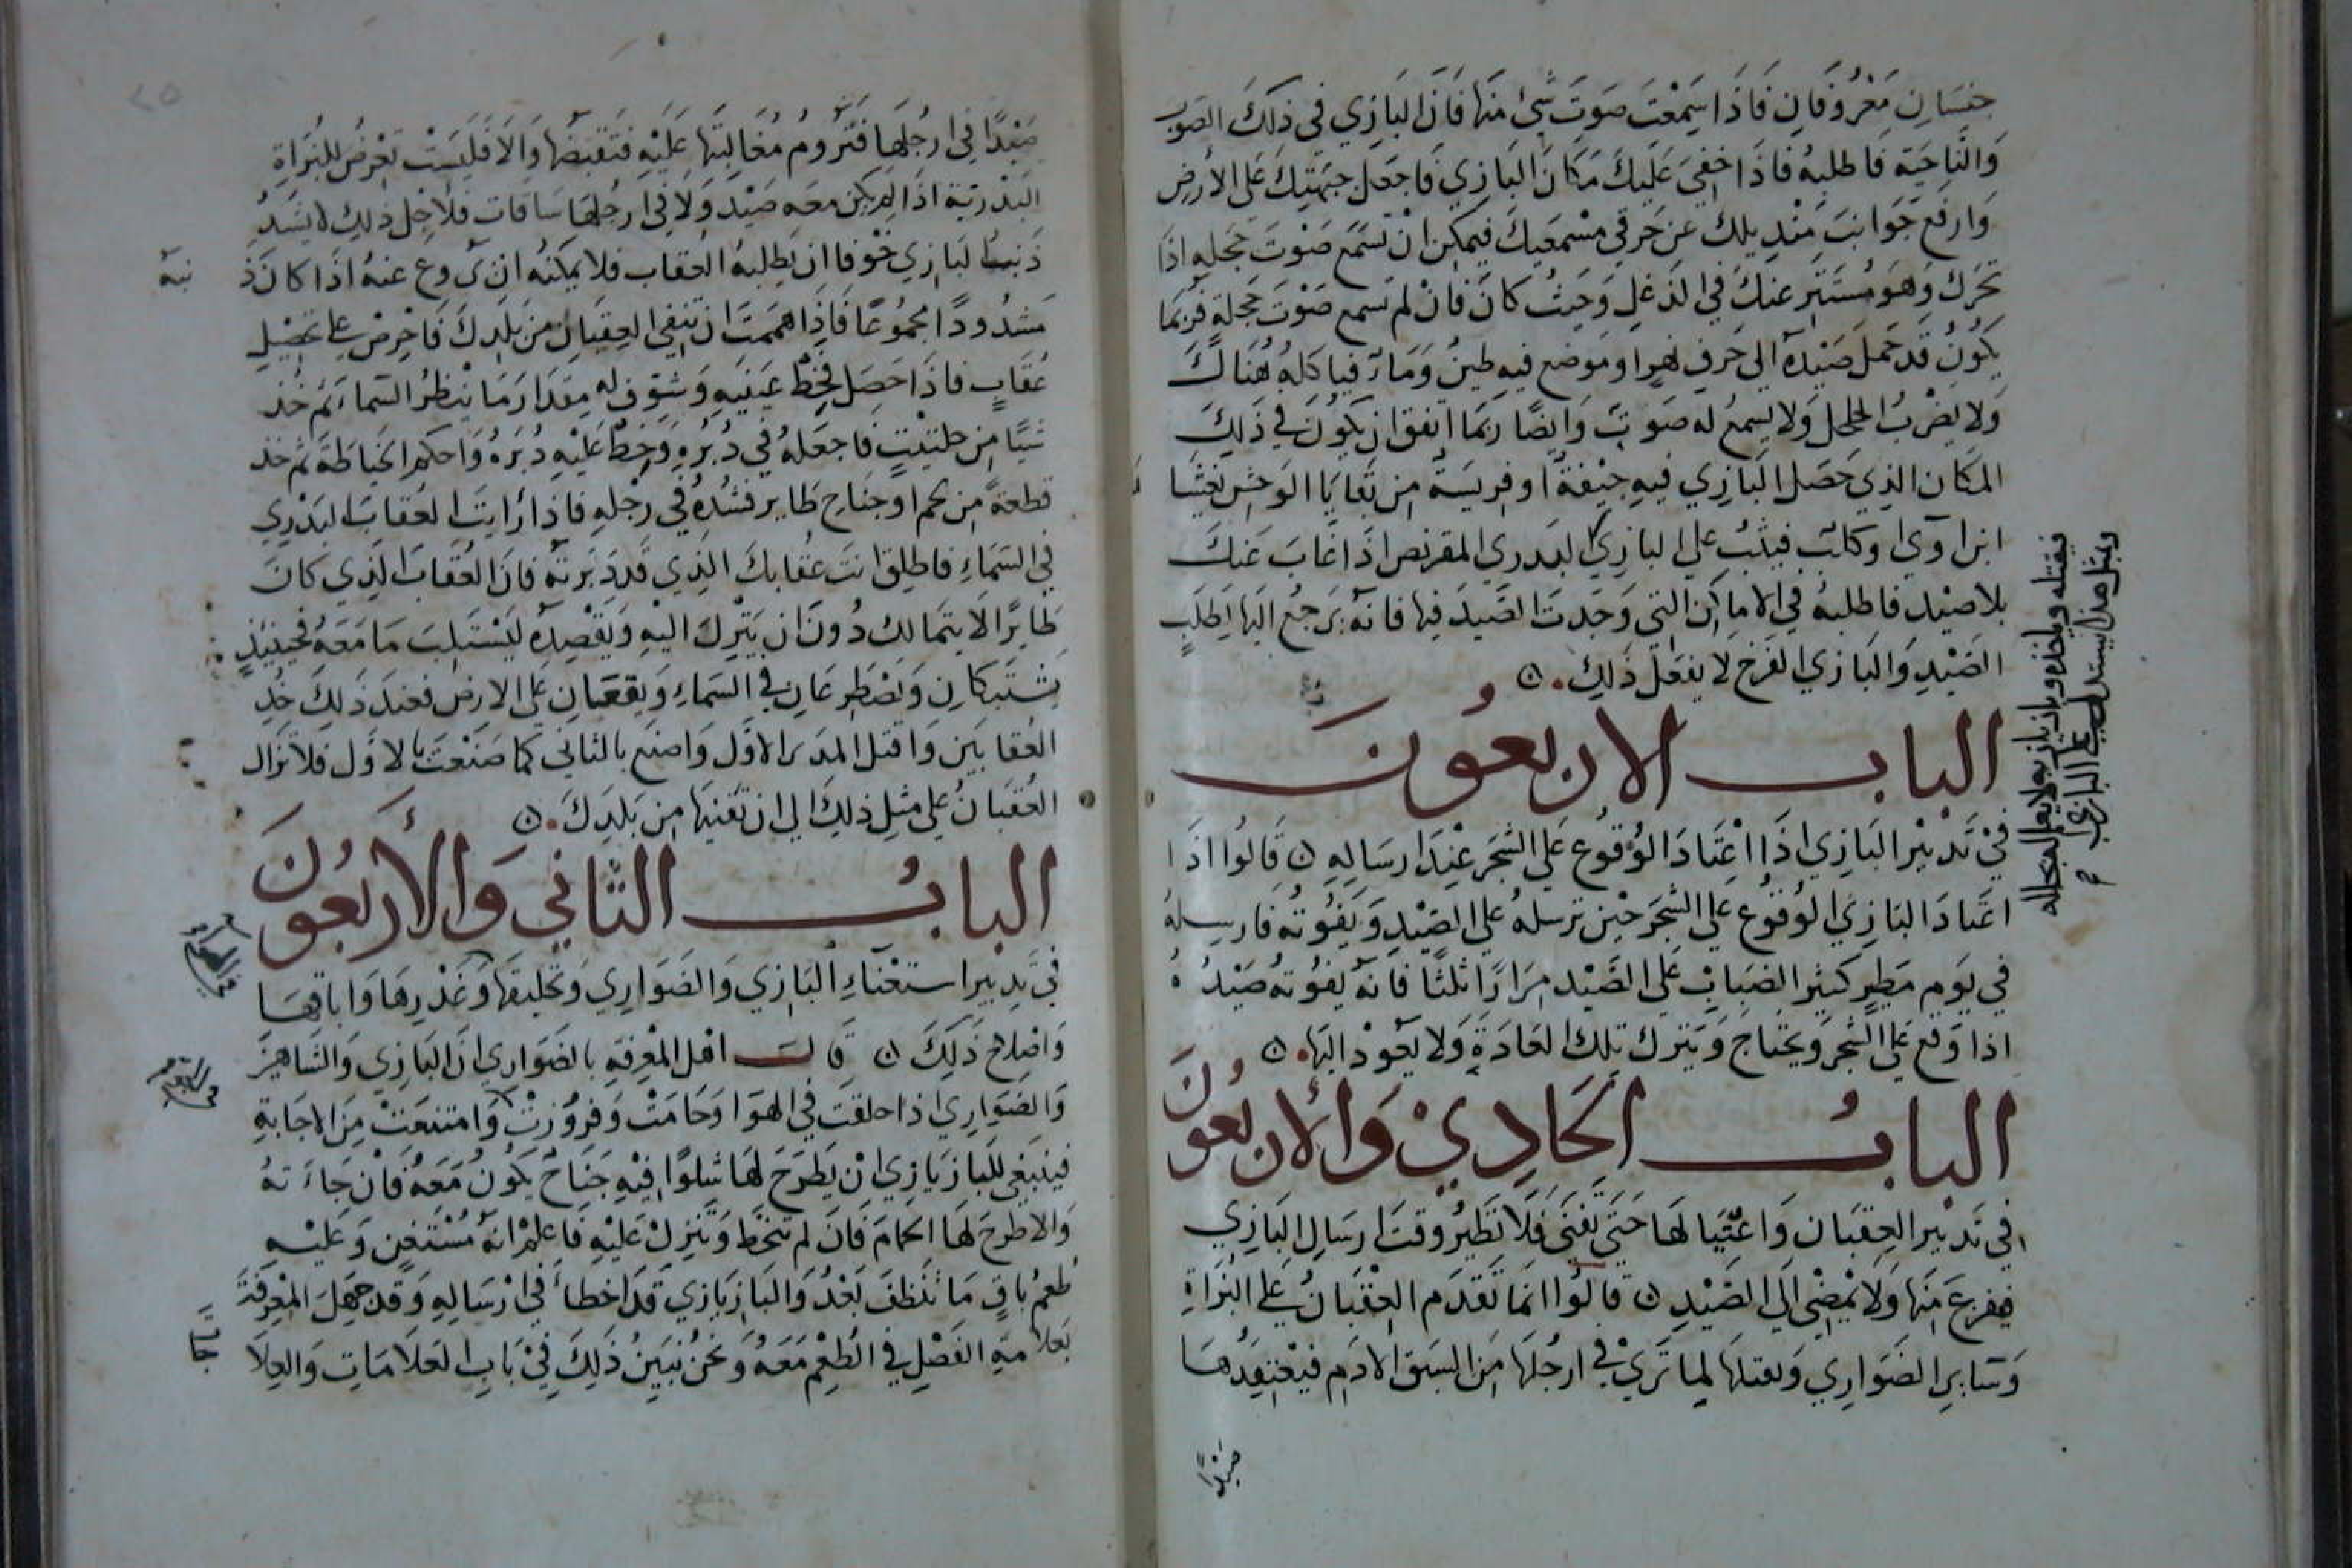 جنسان معروفان فاذا سمعت صوت شئ منها فان البازي في ذلك الصوب
والناحية فاطلبه فاذا خفي عليك مكان البازي فاجعل جبهتك على الأرض
وارفع جوانب منديلك عن خرقي مسمعيك فيمكن ان تسمع صوت جحله اذا
تحرك وهو مستتر عنك في الدغل وحيث كان فان لم تسمع صوت جحلة فربما
يكون قد حمل صيده الى حرف نهر او موضع فيه طين وماء فيأكله هناك
ولا يضرب الجلجل ولا يسمع له صوت وايضا ربما اتفق ان يكون في ذلك
المكان الذي حصل البازي فيه جيفة او فريسة من بقايا الوحش يغشا
ابن اوى وكلب فيثب على البازي البدري المقرنص اذا غاب عنك
بلا صيد فاطلبه في الاماكن التي وجدت الصيد فيها فانه يرجع اليها لطلب
الصيد والبازي الفرخ لا يفعل ذلك
الباب الاربعون
في تدبير البازي اذا اعتاد الوقوع على الشجر عند ارساله قالوا اذا
اعتاد البازي الوقوع على الشجر حين ترسله على الصيد ويفوته فارسله
في يوم مطير كثير الضباب على الصيد مرارا ثلثا فانه يفوته صيده
اذا وقع على الشجر ويحتاج ويترك تلك العادة ولا يعود اليها
الباب الحادي والاربعون
في تدبير العقبان واعتيالها حتى تفنى فلا تطير وقت ارسال البازي
فيفزع منها ولا يمضي الى الصيد قالوا انما تقدم العقبان على البزاة
وسائر الضواري وتقتلها لما ترى في ارجلها من السبق الادم فيعتقدها
صيدا
فيقتله وياخذه
وبمثل هذا يستدل على البازي
صيدا في ارجلها فتروم مغالبتها عليه فتقبضها والا فليست تعرض للبزاة
البدرية اذا لم يكن معه صيد ولا في ارجلها ساقات فلاجل ذلك لا يشد
ذنب البازي خوفا ان يطلبه العقاب فلا يمكنه ان يروغ عنه اذا كان ذ
نبه
مشدودا مجموعا فاذا هممت ان تنفي العقبان من بلدك فاحرص على تحصيل
عقاب فاذا حصل فخط عينيه وشوف له مقدار ما ينظر السماء ثم خذ
شيا من حلتيت فاجعله في دبره وخط عليه دبره واحكم الخياطة ثم خذ
قطعة من لحم او جناح طاير فشده في رجله فاذا رايت العقاب البدري
في السماء فاطلق انت عقابك الذي قد دبرته فان العقاب الذي كان
طايرا لا يتمالك دون ان ينزل اليه ويقصده ليستلب ما معه فحينيذ
يشتبكان ويضطرعان في السماء ويقعان على الارض فعند ذلك خذ
العقابين واقتل المدبر الاول واصنع بالثاني كما صنعت بالاول فلا تزال
العقبان على مثل ذلك الى ان تفنيها من بلدك
الباب الثاني والأربعون
في تدبير استغناء البازي والضواري وتحليقها وغدرها واباقها
واصلاح ذلك قالت اهل المعرفة بالضواري ان البازي والشاهين
والضواري اذا حلقت في الهوا وحامت وفروزت وامتنعت من الاجابة
فينبغي للبازيازي ان يطرح لها شلوا فيه جناح يكون معه فان جاءته
والا طرح لها الحمام فان لم تنحط وتنزل عليه فاعلم انه مستغن وعليه
طعم باق ما تنظف بعد والبازيازي قد اخطأ في ارساله وقد جهل المعرفة
بعلامة الفضل في الطعم معه ونحن نبين ذلك في باب العلامات والعلا
جات